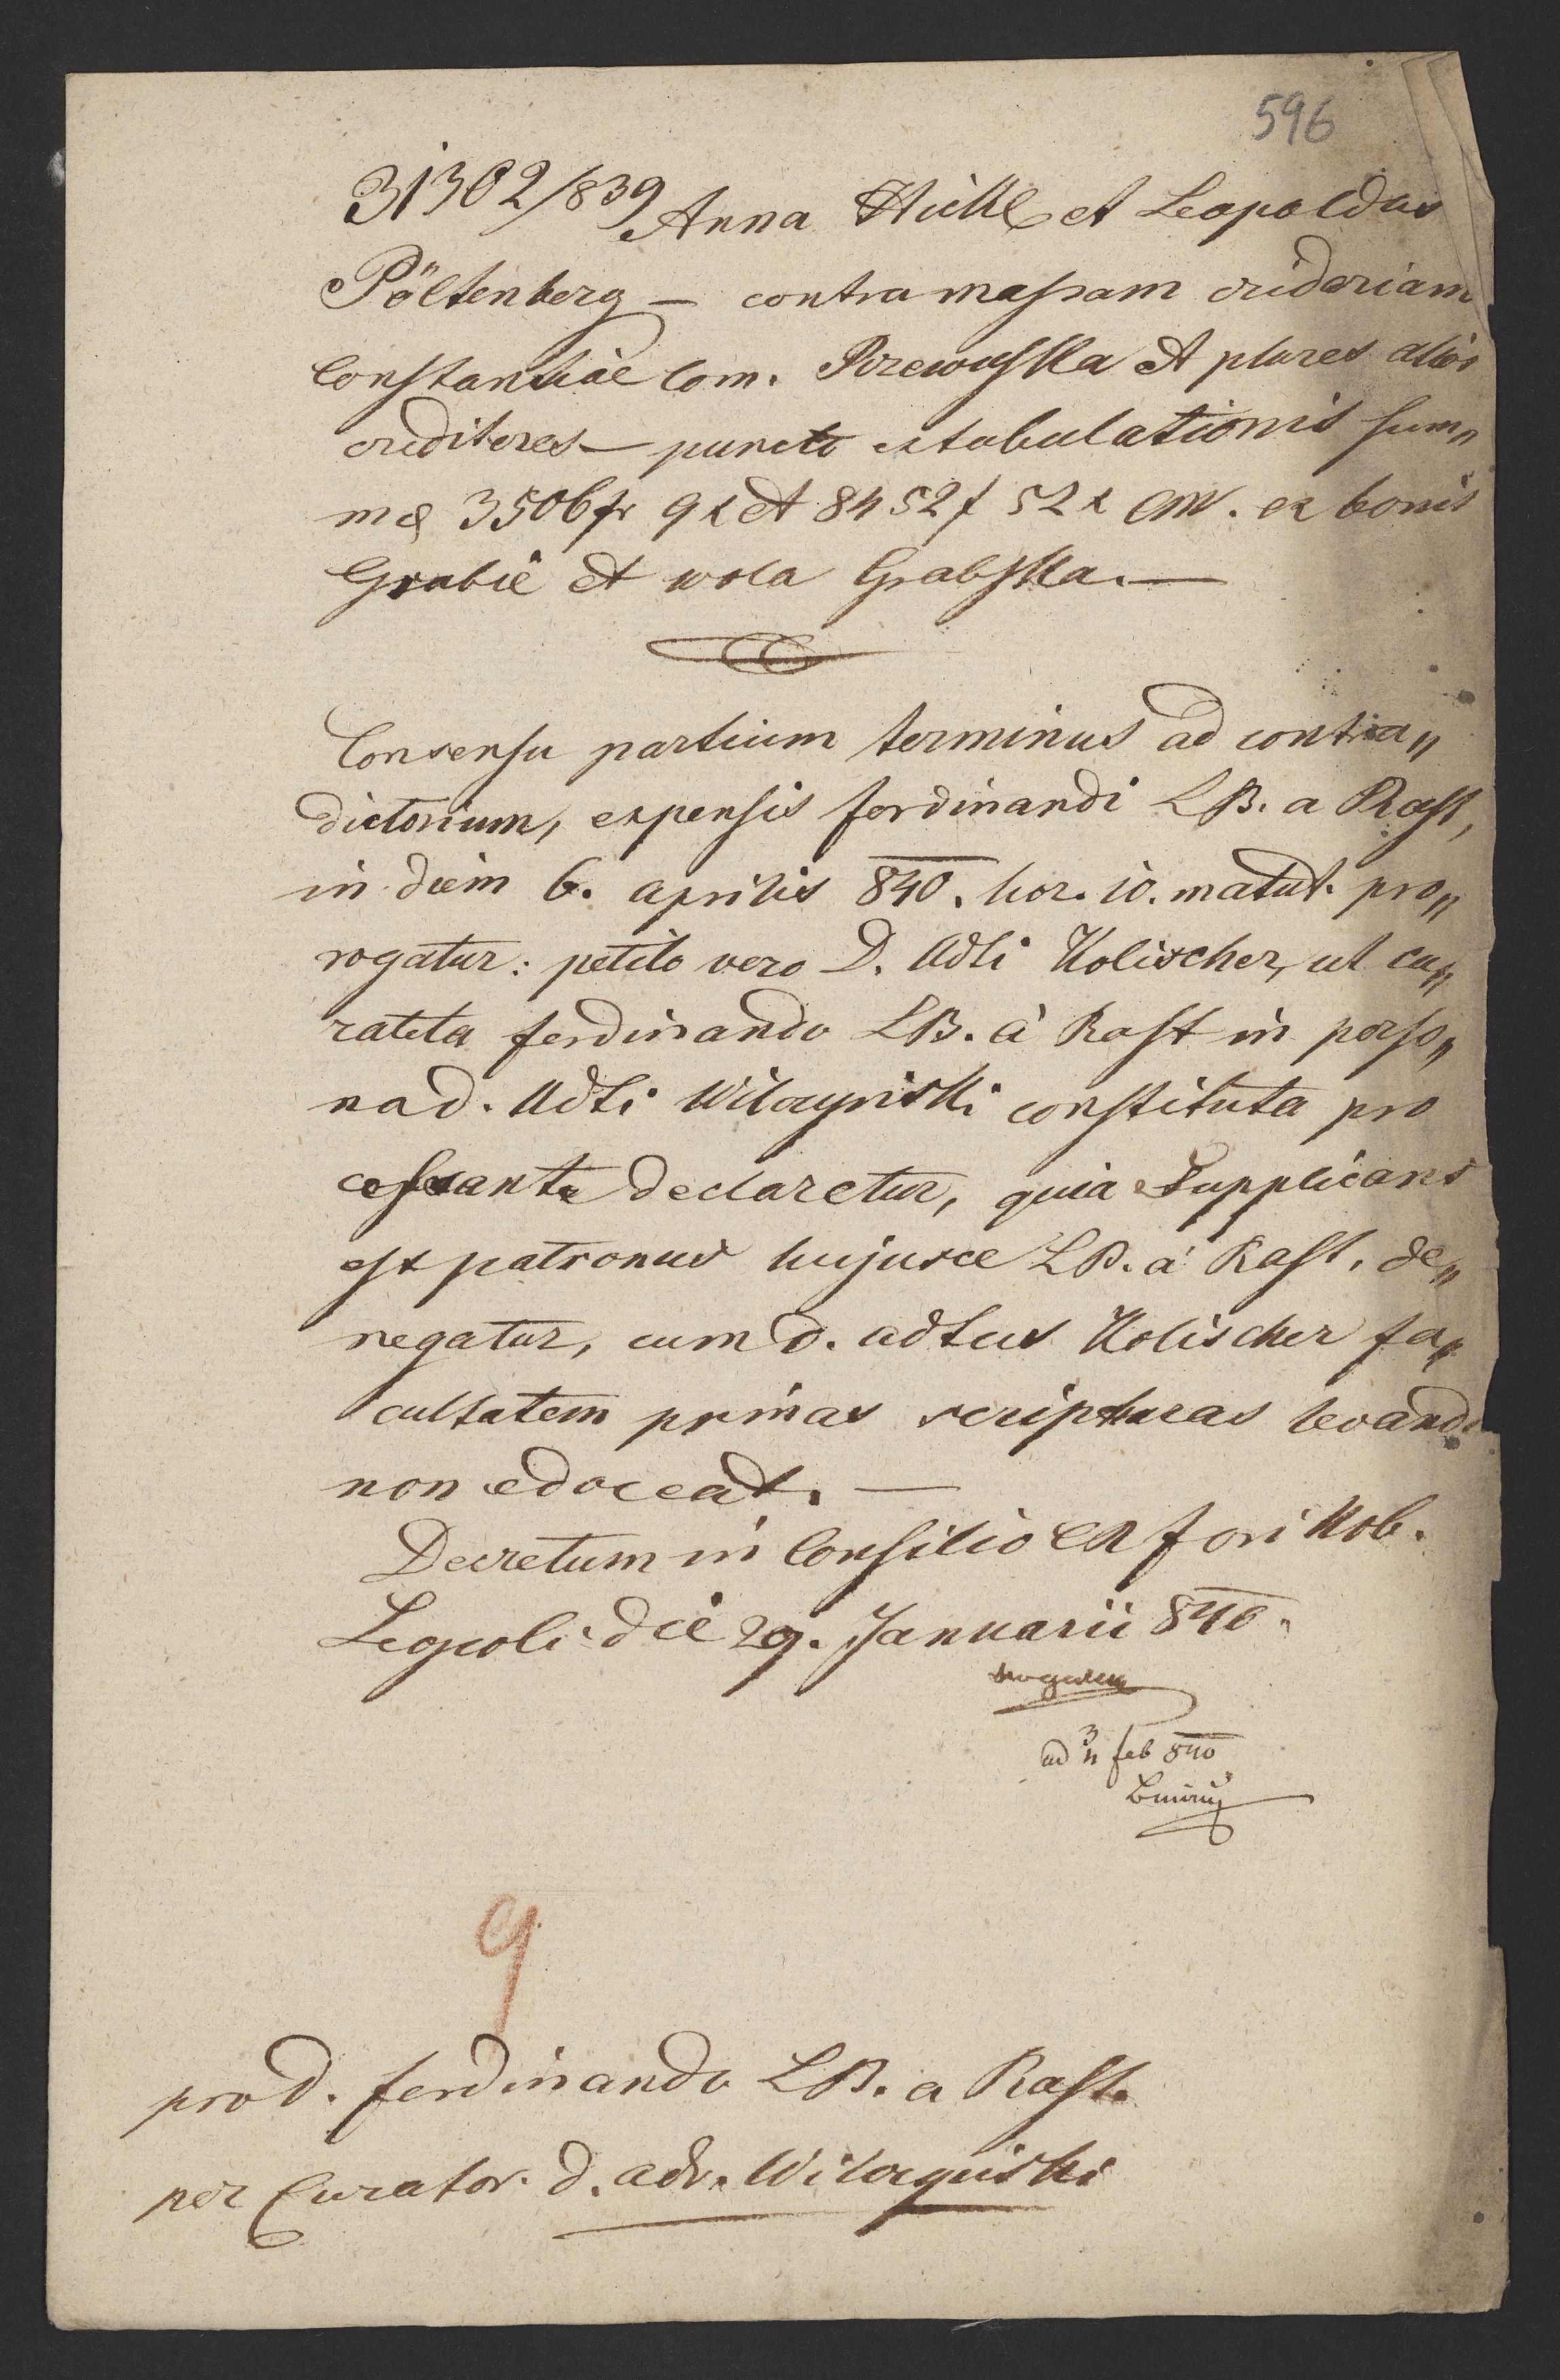 596
31302/839 Anna Hickl et Leopoldus
Pöltenberg — contra massam cridariam
Constantiae Com. Rzewuska et plures alios
creditores — puncto extabulationis sum„
mae 3506 fr 9 x et 8452 f 52 x CM. ex bonis
Grabie et wola Grabska. —
Consensu partium terminus ad contra„
dictorium, expensis ferdinandi LB. a Rast,
in diem 6. aprilis 840. hor. 10. matut. pro„
rogatur: petito vero D. Adti Kolischer, ut cu„
ratela ferdinando LB. à Rast in perso„
na d. Adti Wilczynski constituta pro
cessante declaretur, quia Supplicans
est patronus hujusce LB. à Rast, de„
negatur, cum D. adtus Kolischer fa„
cultatem primas scripturas levandi
non edoceat. —
Decretum in Consilio CR fori Nob.
Leopoli die 29. Januarii 840.
ad 3/4 feb 840
9
pro d. ferdinando LB. a Rast.
per Curator. d. adv. Wilczynski